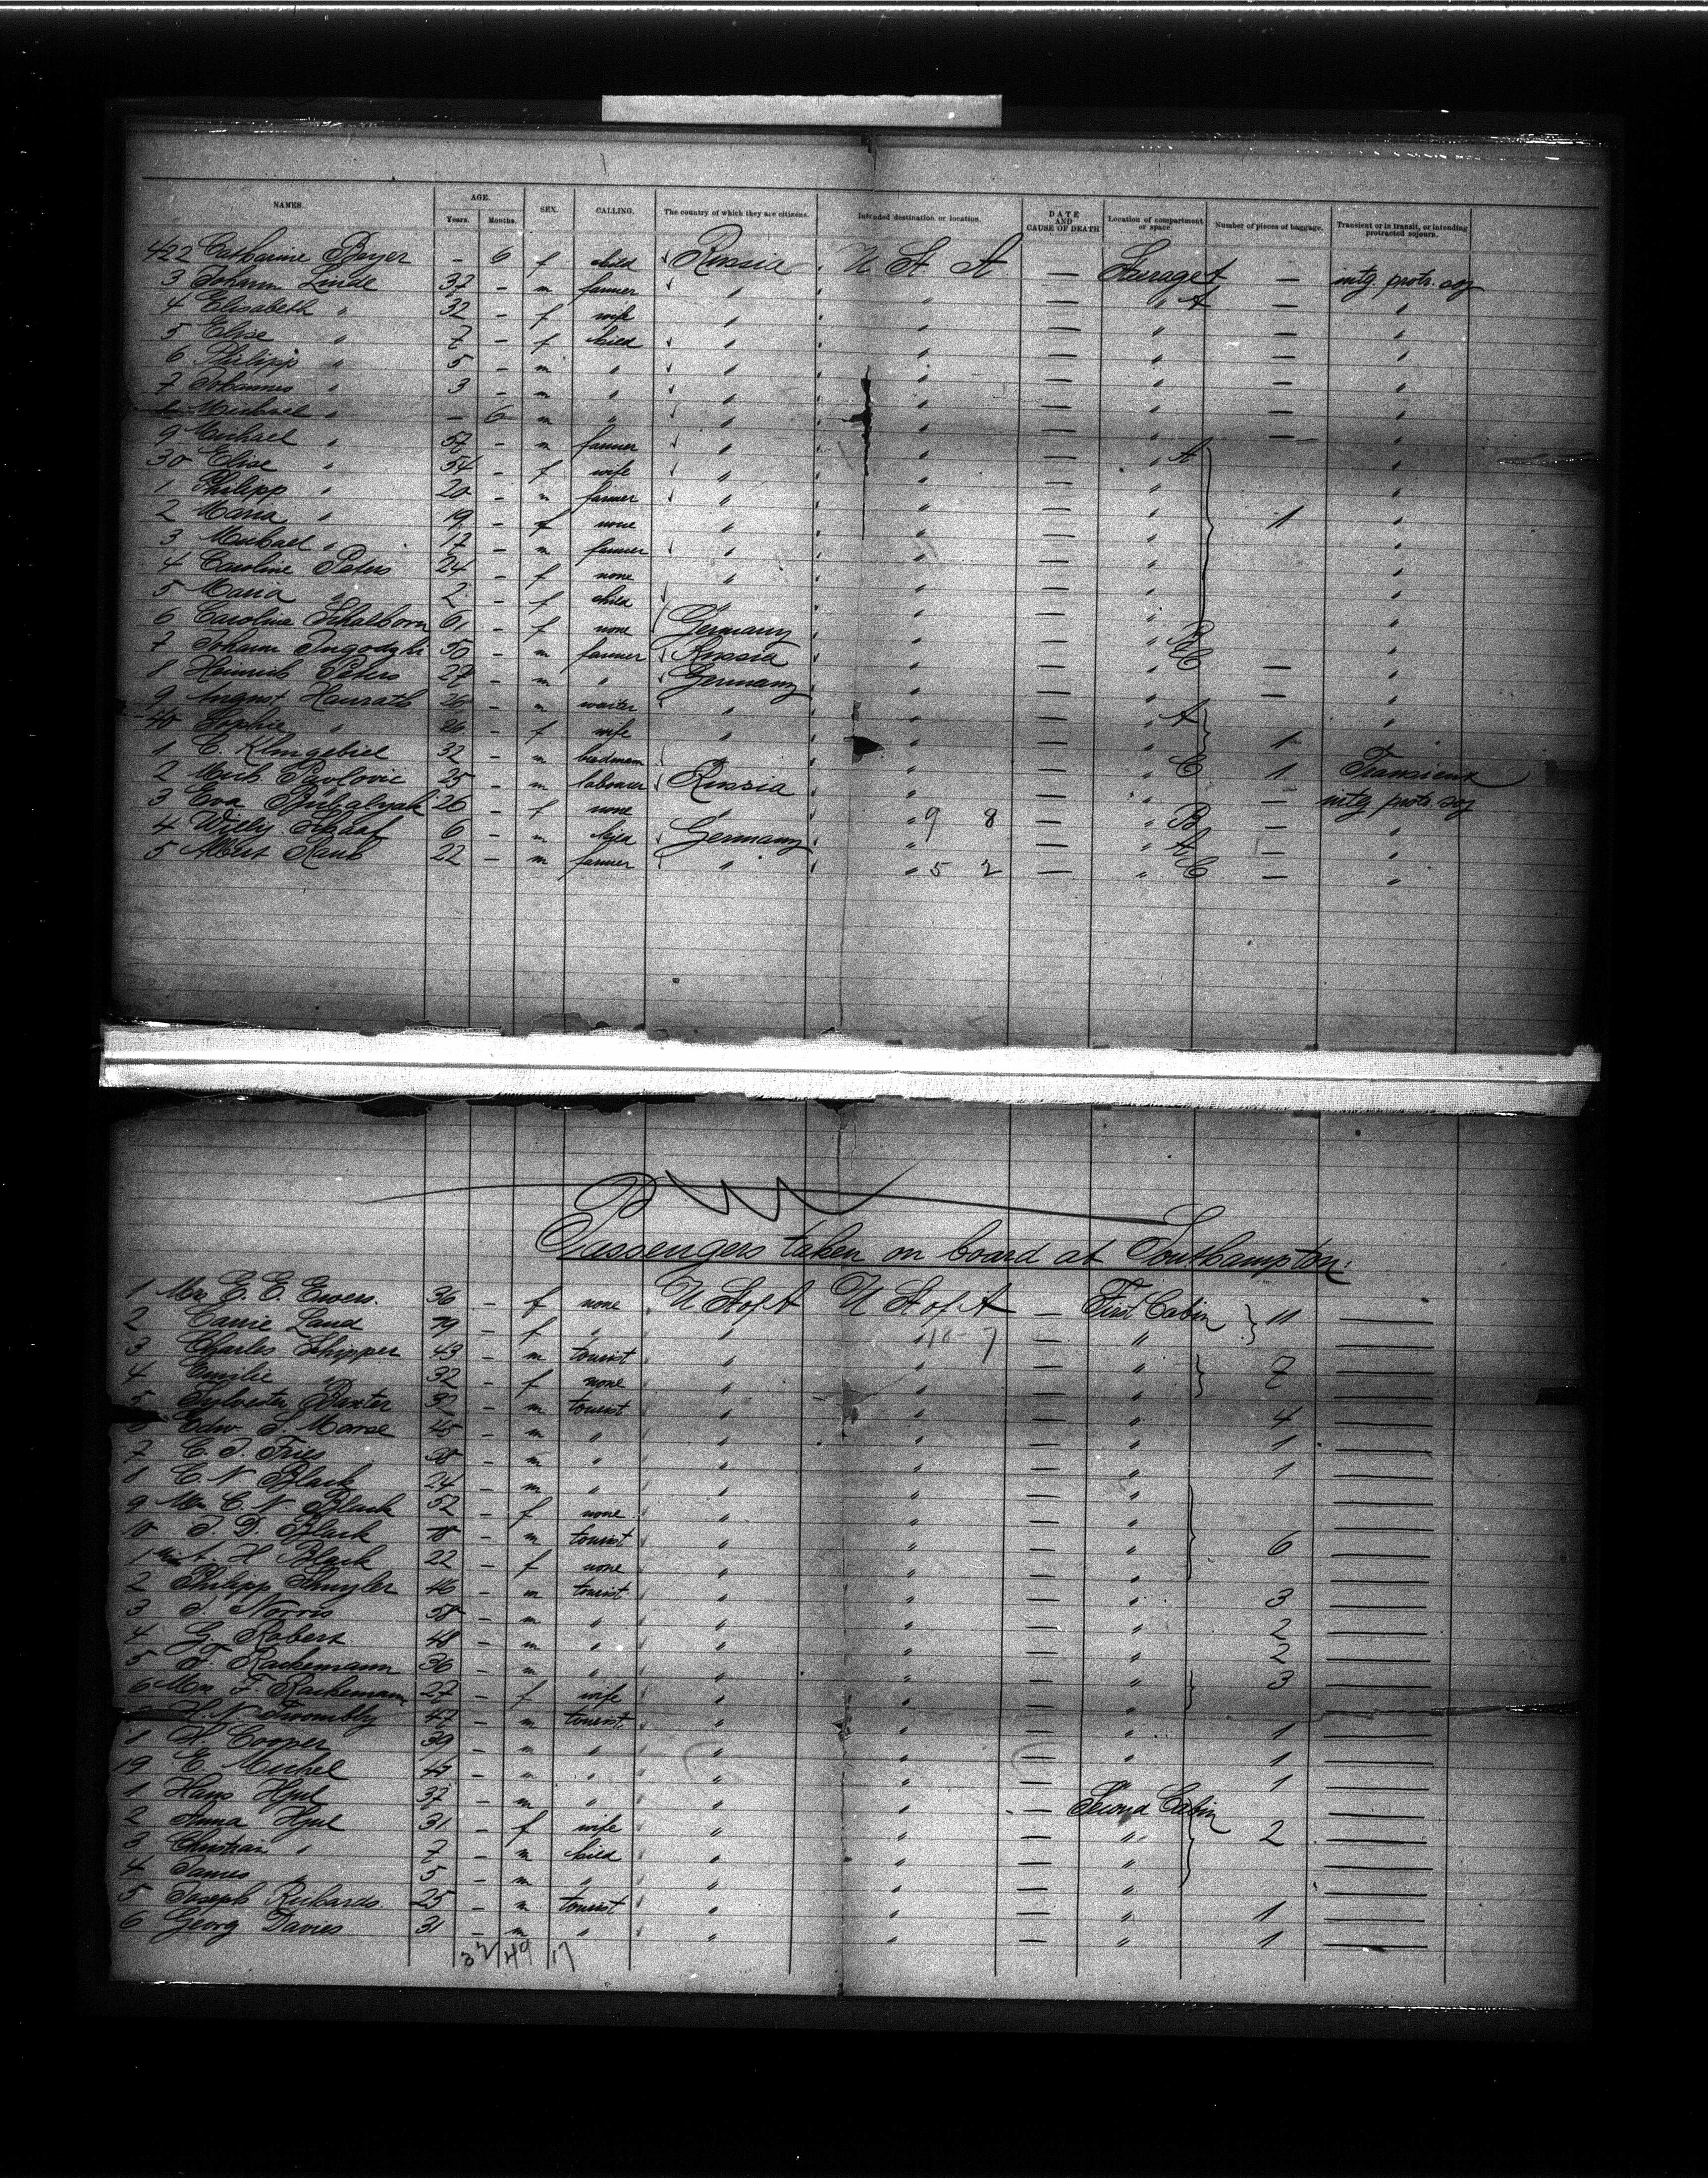 NAMES. AGE. Years. Months. SEX. CALLING. The country of which they are citizens. Intended destination or location. DATE AND CAUSE OF DEATH Location of compartment or space. Number of pieces of baggage. Transient or in transit, or intending protracted sojourn.
422 Catharine Beyer - 6 f child Russia U St A — Steerage A — intg. protr. soj
3 Johann Linde 37 - m farmer " " — " A — "
4 Elisabeth " 32 - f wife " " — " — "
5 Elise " 7 - f child " " — " — "
6 Philipp " 5 - m " " " — " — "
7 Johannes " 3 - m " " " — " — "
8 Michael " - 6 m " " " — " — "
9 Michael " 57 - m farmer " " — " A "
30 Elise " 54 - f wife " " — " "
1 Philipp " 20 - m farmer " " — " "
2 Maria " 19 - f none " " — " 1 "
3 Michael " 17 - m farmer " " — " "
4 Caroline Peters 24 - f none " " — " "
5 Maria " 2 - f child " " — " "
6 Caroline 61 - f none Germany " — " B "
7 Johann 50 - m farmer Russia " — " C — "
8 Heinrich Peters 27 - m " Germany " — " — "
9 August Hausrath 26 - m waiter " " — " A "
40 Sophie " 26 - f wife " " — " 1 "
1 C. Klingebiel 32 - m " " — " C 1 Transient
2 Mich. Pavlovic 25 - m labourer Russia " — " — intg protr. soj
3 Eva 26 - f none " " 9 8 — " B — "
4 Willy Schaaf 6 - m child Germany " — " A — "
5 Albert Raub 22 - m farmer " " 5 2 — " C — "
Passengers taken on board at Southampton:
1 Mrs E. E. Ewers. 36 - f none U St of A U St of A — First Cabin 11 —
2 Carrie Land 19 - f " " " 18-7 — " —
3 Charles Schipper 43 - m tourist " " — " 7 —
4 Emilie " 32 - f none " " — " —
5 Sylvester Baxter 32 - m tourist " " — " 4 —
6 Edw. S. Morse 45 - m " " " — " 1 —
7 C. J. Fries 38 - m " " " — " 1 —
8 C. N. Black 24 - m " " " — " —
9 Mrs C. N. Black 52 - f none " " — " —
10 J. D. Black - m tourist " " — " 6 —
1 Miss A. H Black 22 - f none " " — " —
2 Philipp Schuyler 46 - m tourist " " — " 3 —
3 J. Norris 58 - m " " " — " 2 —
4 G. Robert 48 - m " " " — " 2 —
5 F. Rackemann 36 - m " " " — " 3 —
6 Mrs F. Rackemann 27 - f wife " " — " —
H. N. Twombly 47 - m tourist " " — " 1 —
8 H. Cooper 39 - m " " " — " 1 —
19 E. Michel 47 - m " " " — " 1 —
1 Hans Hjul 37 - m " " " — Second Cabin —
2 Anna Hjul 31 - f wife " " — " 2 —
3 Christian " 7 - m child " " — " —
4 James " 5 - m " " " — " —
5 Joseph Richards. 25 - m tourist " " — " 1 —
6 Georg Davies 31 - m " " " — " 1 —
32 49 17